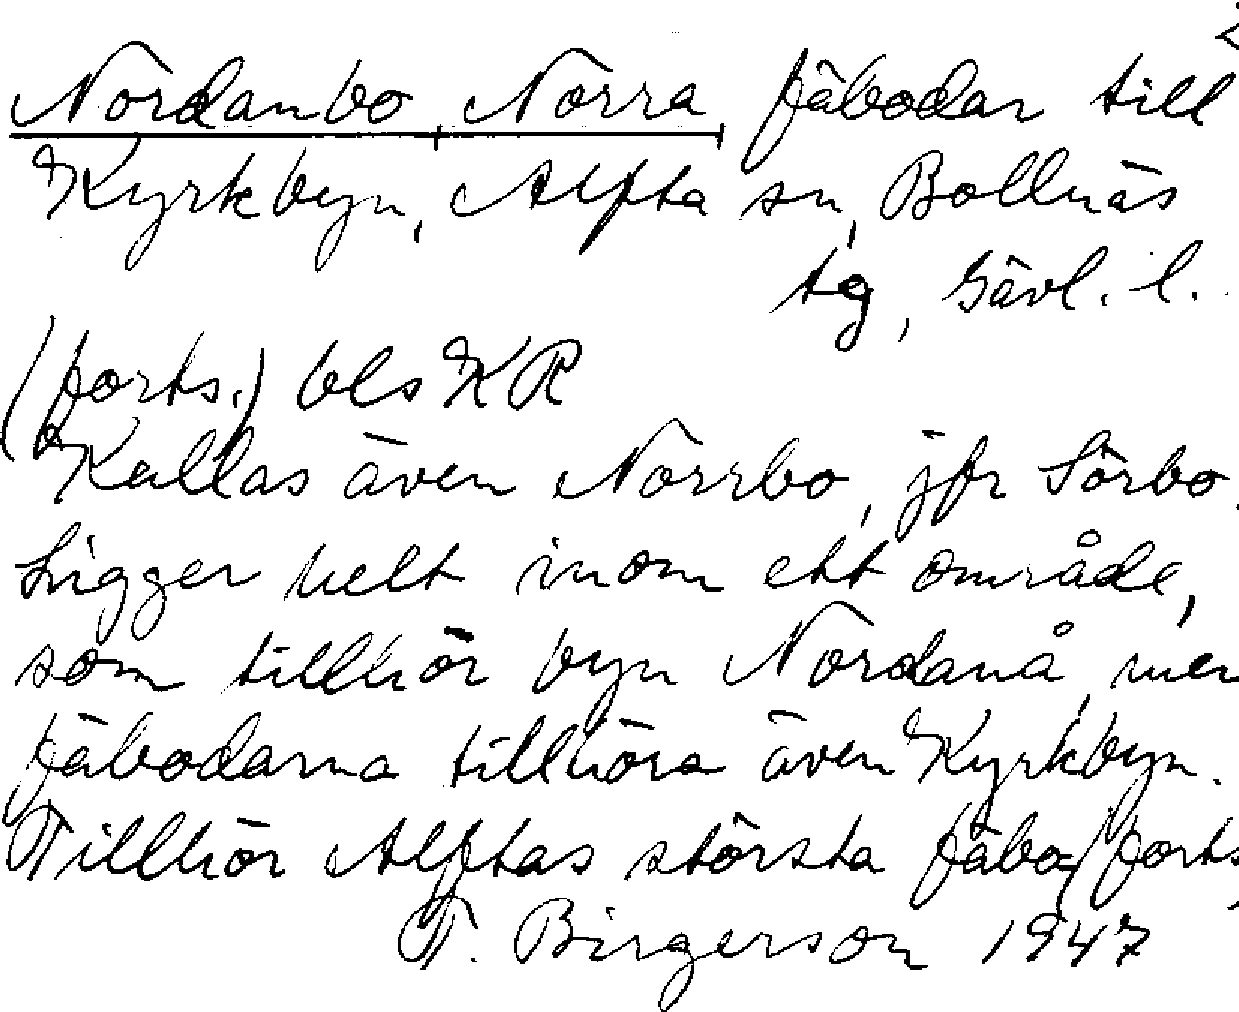 Nordanbo, Norra, fäbodar till
Kyrkbyn, Alfta sn, Bollnäs
tg, Gävl. l.
(forts.) bls KR
Kallas även Norrbo, jfr Sörbo.
Ligger helt inom ett område,
som tillhör byn Nordanå, men
fäbodarna tillhöra även Kyrkbyn.
Tillhör Alftas största fäbo/forts
T. Birgerson 1947